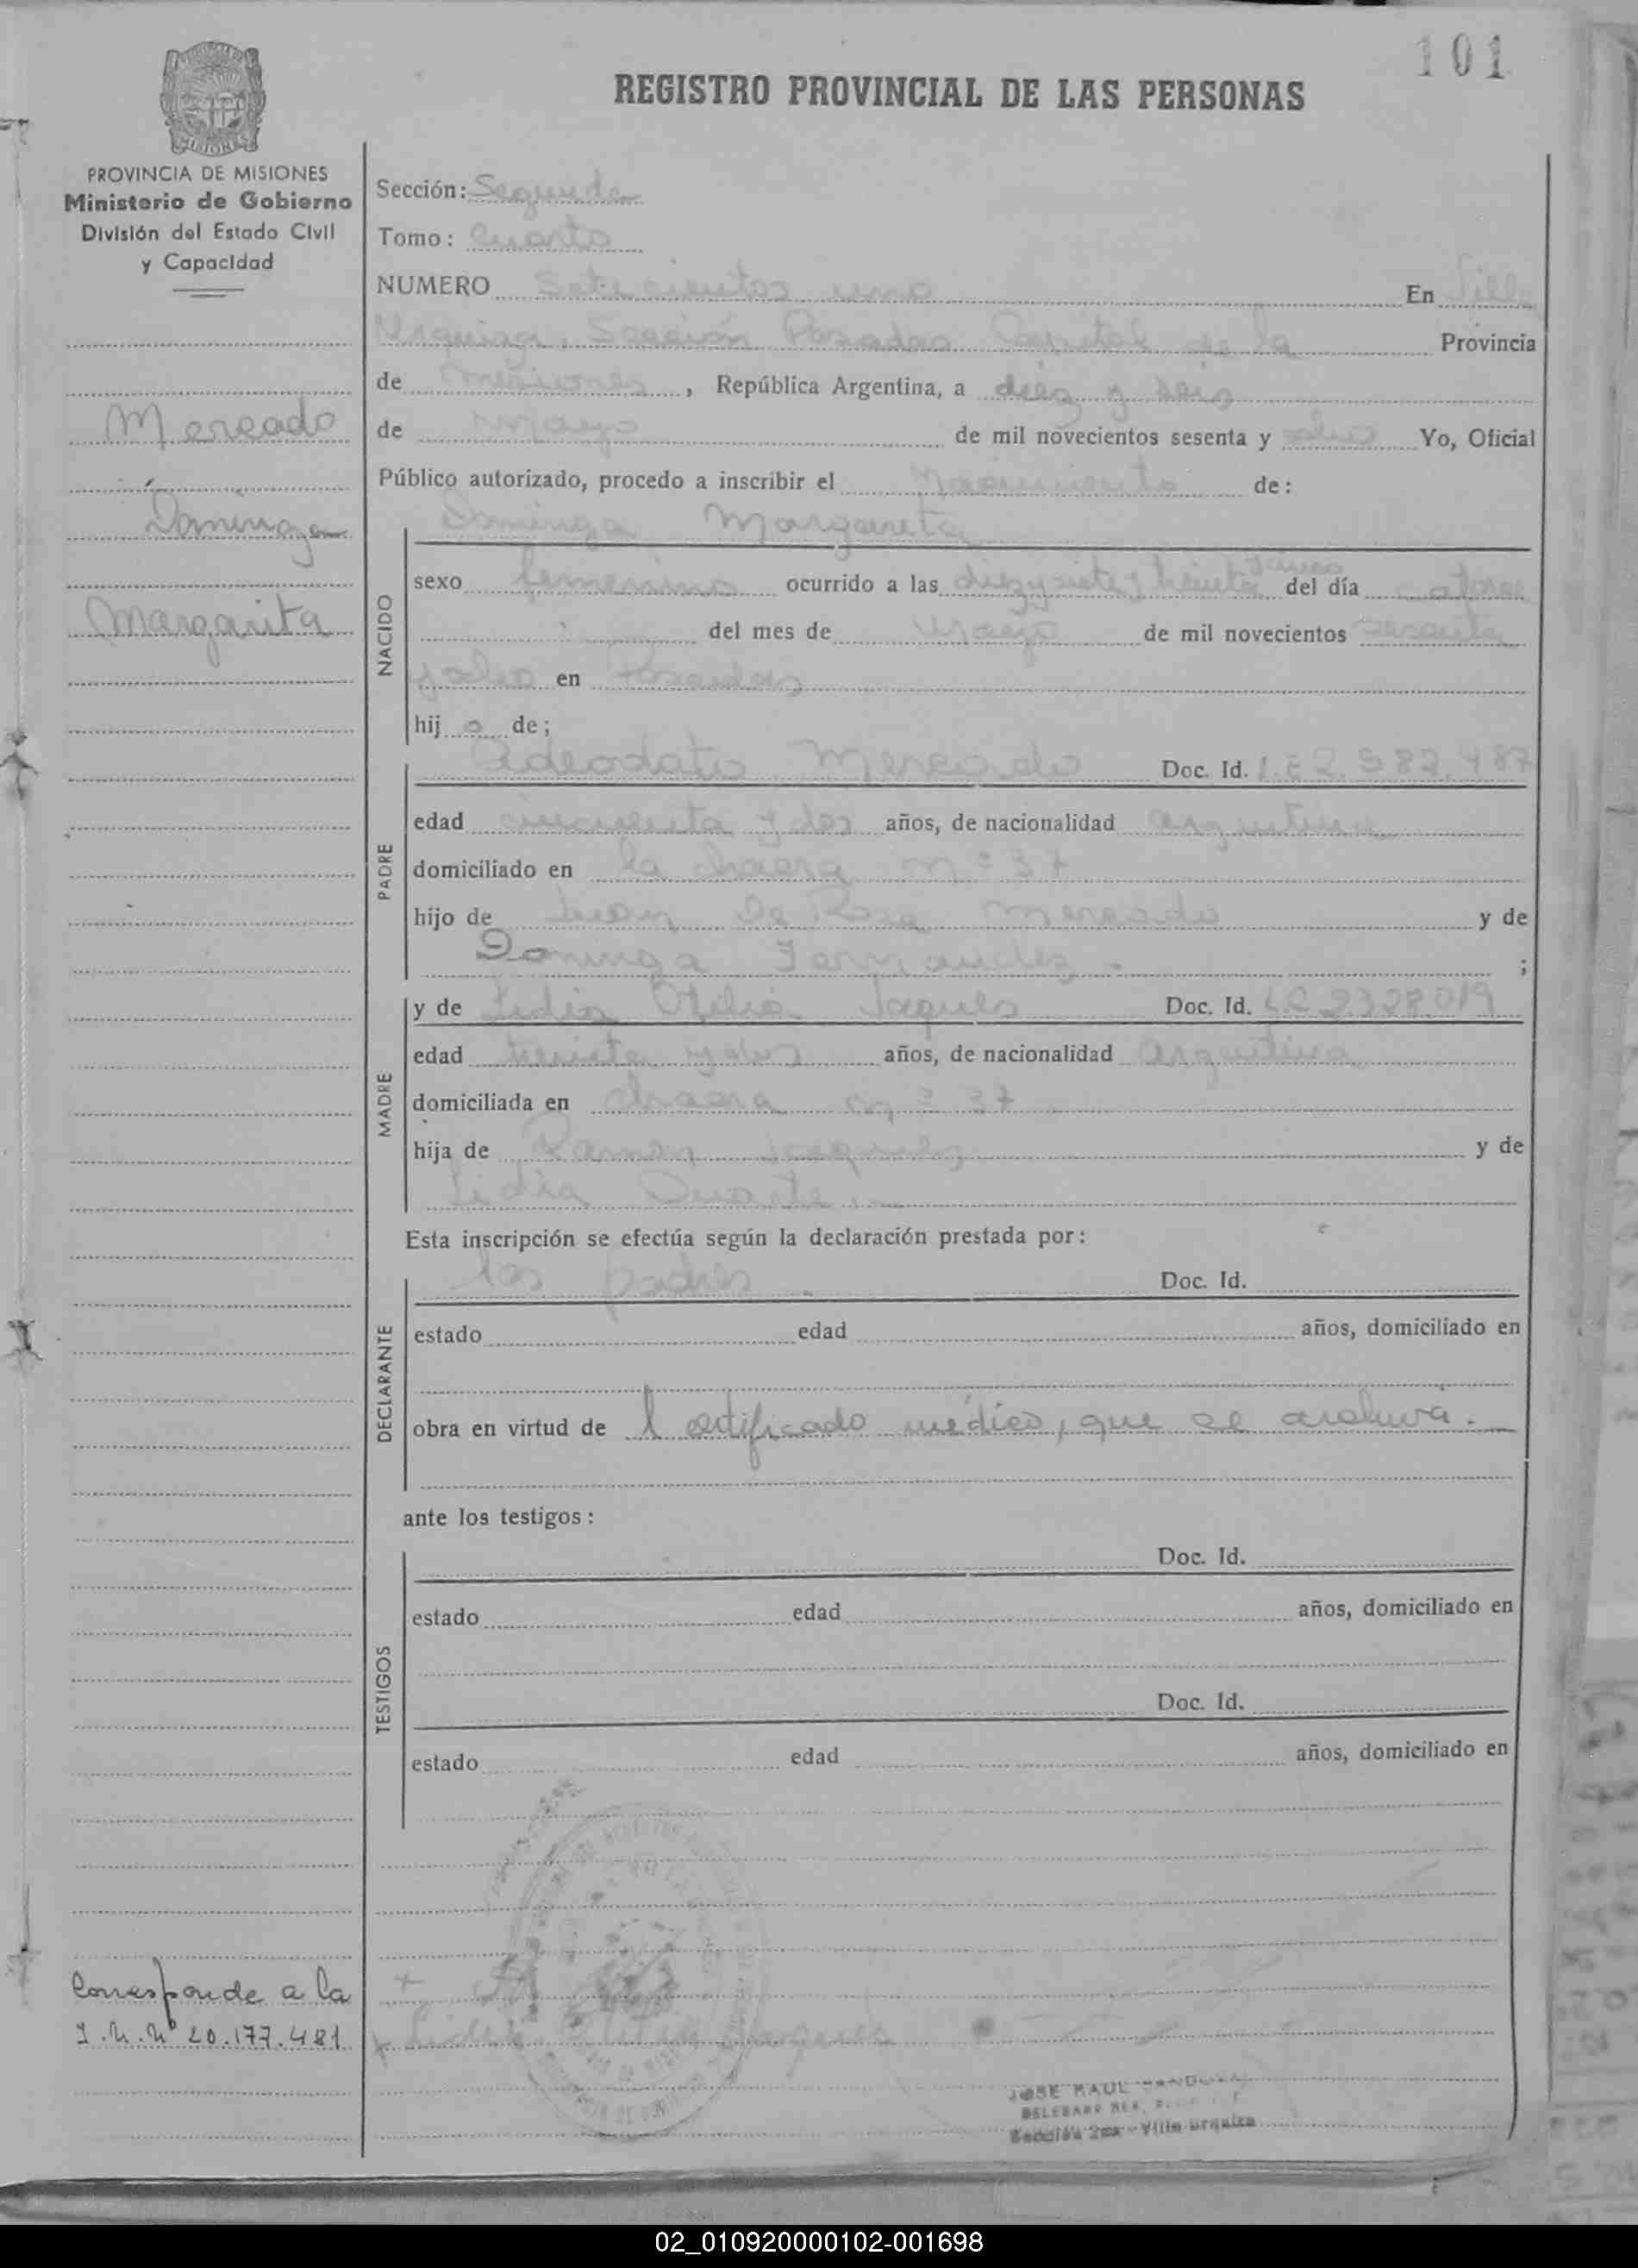 101
REGISTRO PROVINCIAL DE LAS PERSONAS
MISIONES
PROVINCIA DE MISIONES
Ministerio de Gobierno
División del Estado Civil
y Capacidad
Mercado
Dominga
Margarita
Sección: Segunda
Tomo: Cuarto
NUMERO Setecientos uno En Villa
Urquiza, Sección Posadas Capital de la Provincia
de Misiones, República Argentina, a diez y seis
de Mayo de mil novecientos sesenta y ocho Yo, Oficial
Público autorizado, procedo a inscribir el Nacimiento de:
NACIDO
Dominga Margarita
sexo femenino ocurrido a las diez y siete y treinta del día catorce
del mes de Mayo de mil novecientos sesenta
y ocho en Posadas
hij a de;
PADRE
Adeodato Mercado Doc. Id. L.E 2.582.487
edad cincuenta y dos años, de nacionalidad argentina
domiciliado en la chacra nº 37
hijo de Juan De Rosa Mercado y de
Dominga Fernandez. ;
MADRE
y de Lidia Otilia Jaques Doc. Id. LC 2328019
edad treinta y dos años, de nacionalidad argentina
domiciliada en chacra nº 37
hija de Ramon Jaques y de
Lidia Duarte.
Esta inscripción se efectúa según la declaración prestada por:
DECLARANTE
los padres Doc. Id.
estado edad años, domiciliado en
obra en virtud de Certificado médico, que se archiva.
ante los testigos:
TESTIGOS
Doc. Id.
estado edad años, domiciliado en
Doc. Id.
estado edad años, domiciliado en
Corresponde a la
I.M.Nº 20.177.481
JOSE RAUL
Sección 2da - Villa Urquiza
02_010920000102-001698